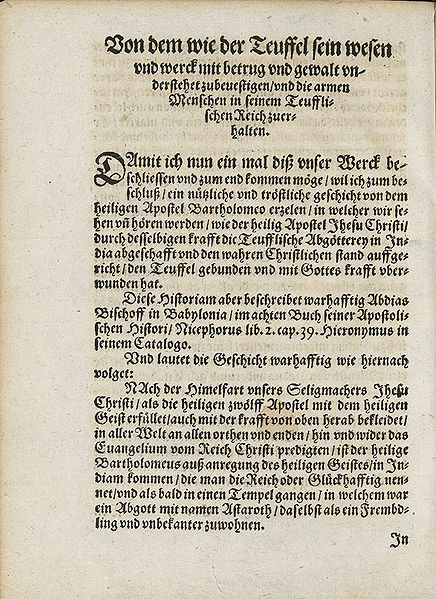 Von dem wie der Teuffel sein wesen
vnd werck mit betrug vnd gewalt vn-
derstehet zubeuestigen/ vnd die armen
Menschen in seinem Teuffli-
schen Reich zuer-
halten.
DAmit ich nun ein mal diß vnser Werck be-
schliessen vnd zum end kommen möge/ wil ich zum be-
schluß/ ein nützliche vnd tröstliche geschicht von dem
heiligen Apostel Bartholomeo erzelen/ in welcher wir se-
hen vñ hören werden/ wie der heilig Apostel Jhesu Christi/
durch desselbigen krafft die Teufflische Abgötterey in In-
dia abgeschafft vnd den wahren Christlichen stand auffge-
richt/ den Teuffel gebunden vnd mit Gottes krafft vber-
wunden hat.
Diese Historiam aber beschreibet warhafftig Abdias
Bischoff in Babylonia/ im achten Buch seiner Apostoli-
schen Histori/ Nicephorus lib. 2. cap. 39. Hieronymus in
seinem Catalogo.
Vnd lautet die Geschicht warhafftig wie hiernach
volget:
NAch der Himelfart vnsers Seligmachers Jhesu
Christi/ als die heiligen zwölff Apostel mit dem heiligen
Geist erfüllet/ auch mit der krafft von oben herab bekleidet/
in aller Welt an allen orthen vnd enden/ hin vnd wider das
Euangelium vom Reich Christi predigten/ ist der heilige
Bartholomeus auß anregung des heiligen Geistes/ in In-
diam kommen/ die man die Reich oder Glückhafftig nen-
net/ vnd als bald in einen Tempel gangen/ in welchem war
ein Abgott mit namen Astaroth/ daselbst als ein Frembd-
ling vnd vnbekanter zuwohnen.
In